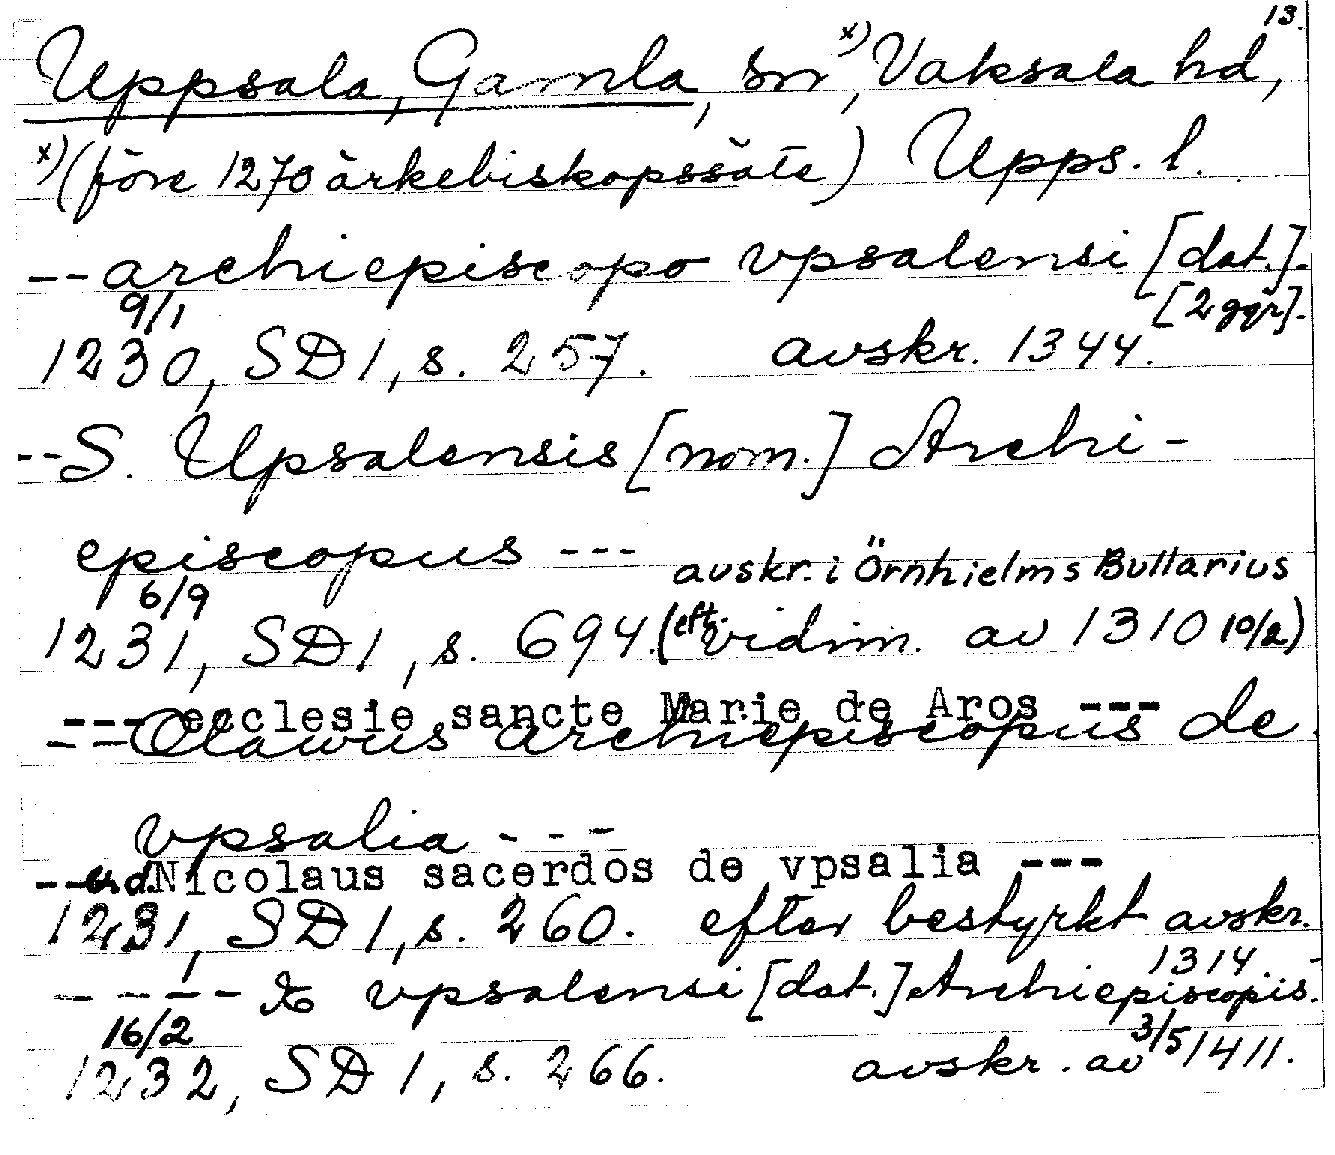 13.
Uppsala, Gamla, sn x), Vaksala hd,
x) (före 1270 ärkebiskopssäte) Upps. l.
-- archiepiscopo vpsalensi [dat.].
9/1 [2 ggr].
1230, SD 1, s. 257. avskr. 1344.
-- S. Upsalensis [nom.] Archi-
episcopus --- avskr. i Örnhielms Bullarius
6/9
1231, SD 1, s. 694. (eft. vidim. av 1310 10/2)
--- ecclesie sancte Marie de Aros ---
-- Olawus archiepiscopus de
vpsalia ---
-- u.d. Nicolaus sacerdos de vpsalia ---
1231, SD 1, s. 260. efter bestyrkt avskr.
1314.
---- & vpsalensi [dat.] Archiepiscopis.
16/2
1232, SD 1, s. 266. avskr. av 3/5 1411.